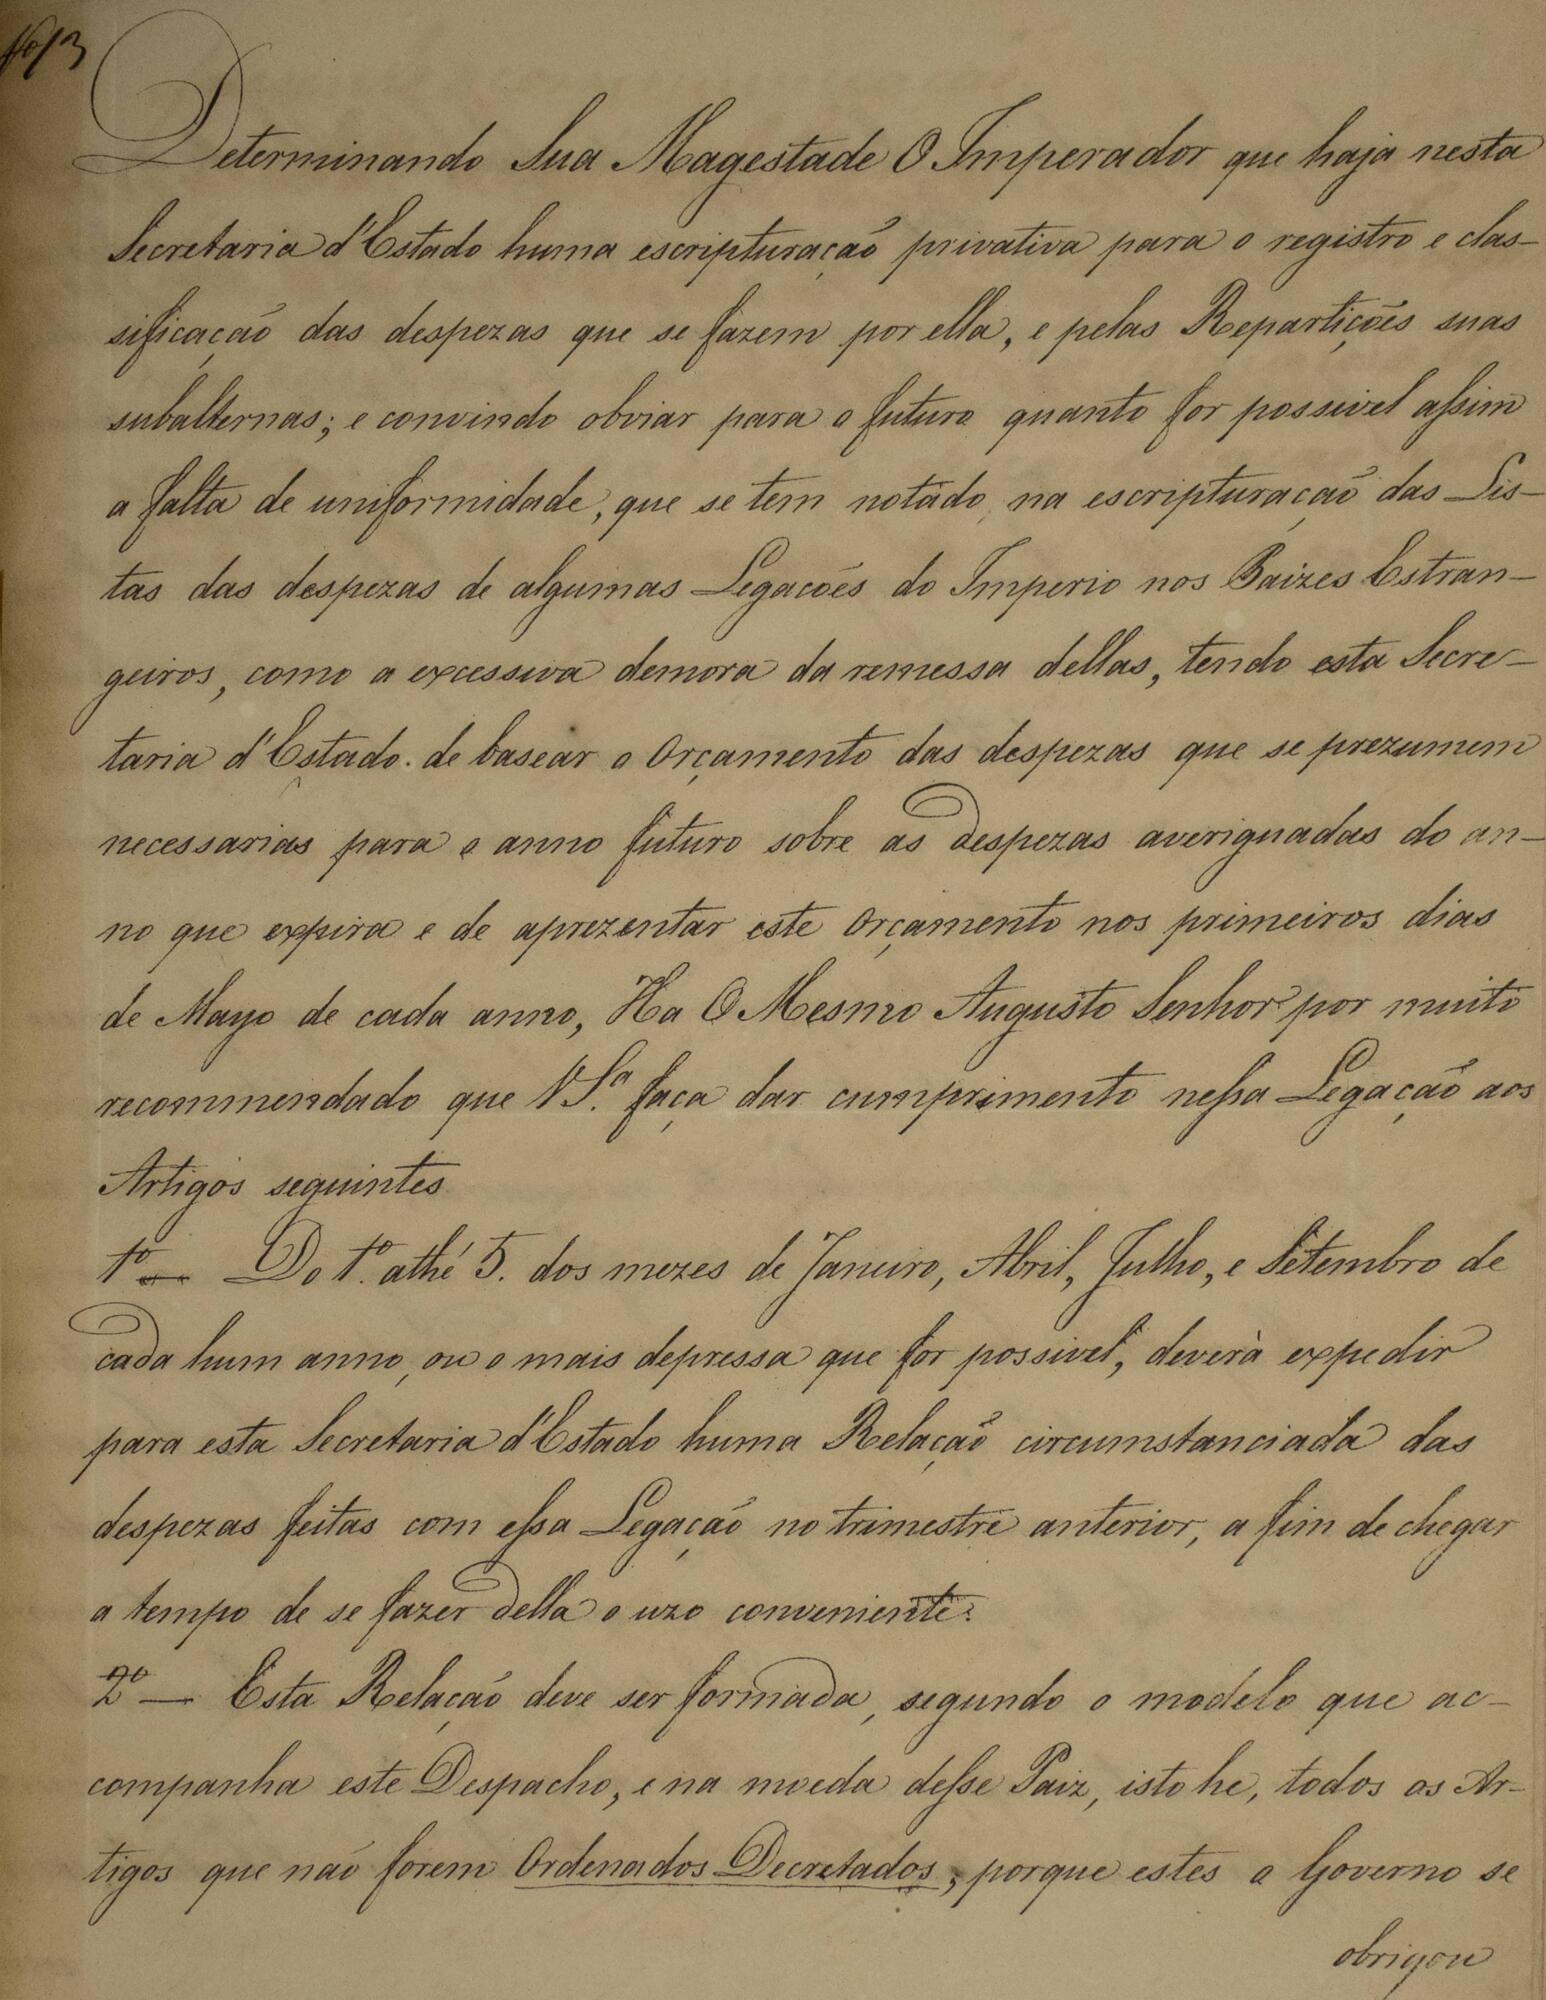 Determinando Sua Magestade O Imperador que haja nesta
Secretaria d'Estado huma escripturação privativa para o registro e clas-
sificação das despezas que se fazem por ella, e pelas Repartições suas
subalternas; e convindo obviar para o futuro quanto for possivel assim
a falta de uniformidade, que se tem notado, na escripturação das Lis-
tas das despezas de algumas Legacões do Imperio nos Paizes Estran-
geiros, como a excessiva demora da remessa dellas, tendo esta Secre-
taria d'Estado. de basear o Orçamento das despezas que se prezumem
necessarias para o anno futuro sobre as despezas averiguadas do an-
no que expira e de aprezentar este Orçamento nos primeiros dias
de Mayo de cada anno, Ha O Mesmo Augusto Senhor por muito
recommendado que V Sª. faça dar cumprimento nessa Legação aos
Artigos seguintes
1º — Do 1º. athé 5. dos mezes de Janeiro, Abril, Julho, e Setembro de
cada hum anno, ou o mais depressa que for possivel, deverà expedir
para esta Secretaria d'Estado huma Relação circumstanciada das
despezas feitas com essa Legação no trimestre anterior, a fim de chegar
a tempo de se fazer della o uzo conveniente.
2º — Esta Relação deve ser formada, segundo o modelo que ac-
companha este Despacho, e na moeda desse Paiz, isto he, todos os Ar-
tigos que não forem Ordenados Decretados; porque estes o Governo se
obrigou